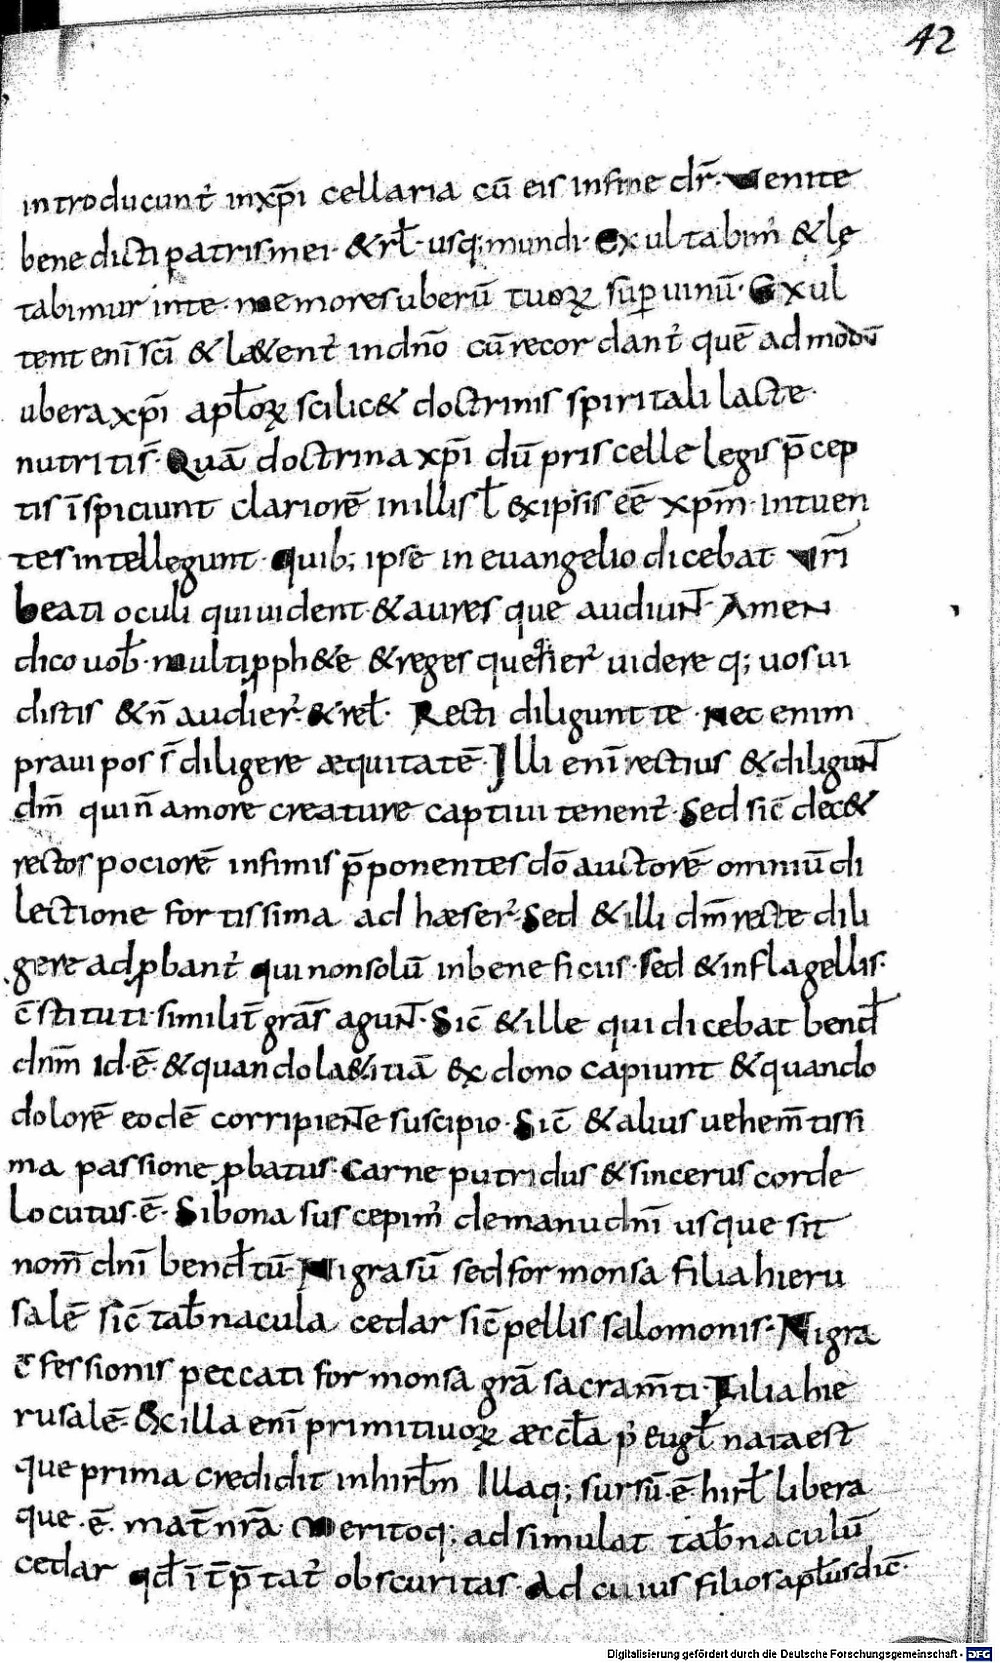 42
introducunt᷑ inxp̄i cellaria cū eis infine dr̄. Venite
benedicti patris mei. & rł. usq; mundi. Exultabim᷑ & lę
tabimur inte. memores uberū tuoꝝ sup uinū. Exul
tent enī sc̄i & læ&ent᷑ indn̄o cū recordant᷑ quē ad modū
ubera xp̄i apłoꝝ scilic& doctrinis spiritali lacte
nutriti s̄. Quā doctrina xp̄i dū priscelle legis p̄cep
tis īspiciunt clariorē inillis ł exipsis eē xp̄m. intuen
tes intellegunt. Quib; ipse in euangelio dicebat. Vr̄i
beati oculi qui uident & aures que audiunt. Amen
dico uob̄. multi ꝓph&e & reges quesier᷑ uidere q; uos ui
distis & n̄ audier᷑. & reł. Recti diligunt te. Nec enim
praui pos s̄ diligere æquitatē. Illi enī rectius & diligunt
dm̄ qui n̄ amore creature captiui tenent᷑. Sed sic̄ dec&
rectos pociorē infimis p̄ponentes dō auctorē omniū di
lectione fortissima adhæser᷑. Sed & illi dm̄ recte dili
gere adꝓbant᷑ qui nonsolū inbeneficiis. sed & inflagellis.
c̄stituti. similit̄ grās agunt. Sic̄ & ille qui dicebat bened̄
dnm̄ id. ē. & quando læ&itiā ex dono capiunt & quando
dolorē eodē corripiente suscipio. Sic̄ & alius uehem̄tissi
ma passione ꝓbatus. Carne putridus & sincerus corde
locutus. ē. Si bona suscepim᷑ demanu dnī usque sit
nom̄ dnī bened̄tū. Nigra sū sed formonsa filia hieru
salē sic̄ tab̄nacula cedar sic̄ pellis salomonis. Nigra
c̄fessionis peccati formonsa grā sacram̄ti. Filia hie
rusalē. Ex illa enī primitiuoꝝ æccła p᷑ eugł nata est
que prima credidit inhirłm Illaq; sursū. ē hirł libera
que. ē. mat̄ nr̄a. Meritoq; adsimulat tab̄naculū
cedar qd̄ īt̄p̄tat᷑ obscuritas. Ad cuius filios apłus dic̄.
Digitalisierung gefördert durch die Deutsche Forschungsgemeinschaft - DFG